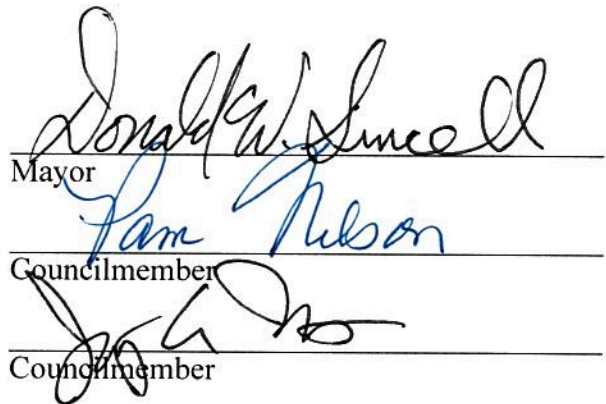 Donald W. Sincell
Mayor
Pam Nelson
Councilmember
Councilmember